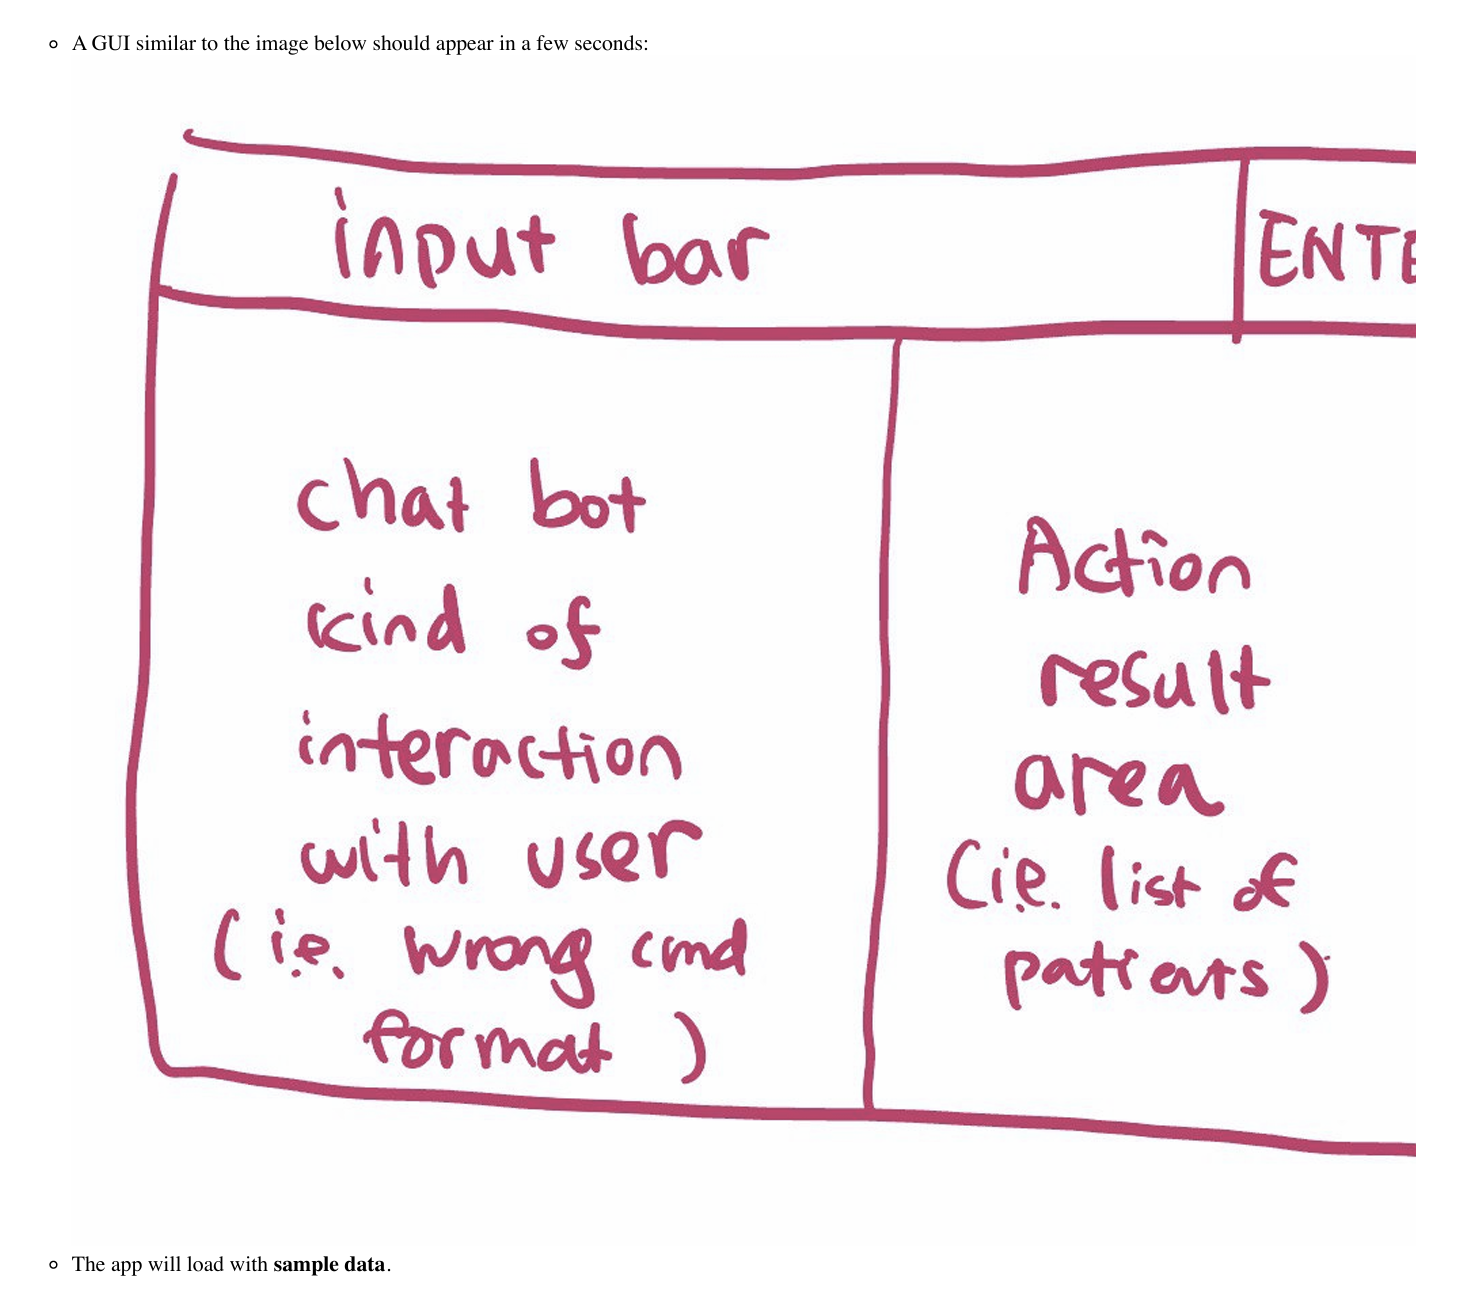 A GUI similar to the image below should appear in a few seconds:
input bar
ENTE
chat bot
kind of
interaction
with user
(i.e. wrong cmd
format )
Action
result
area
(i.e. list of
patients )
The app will load with sample data.